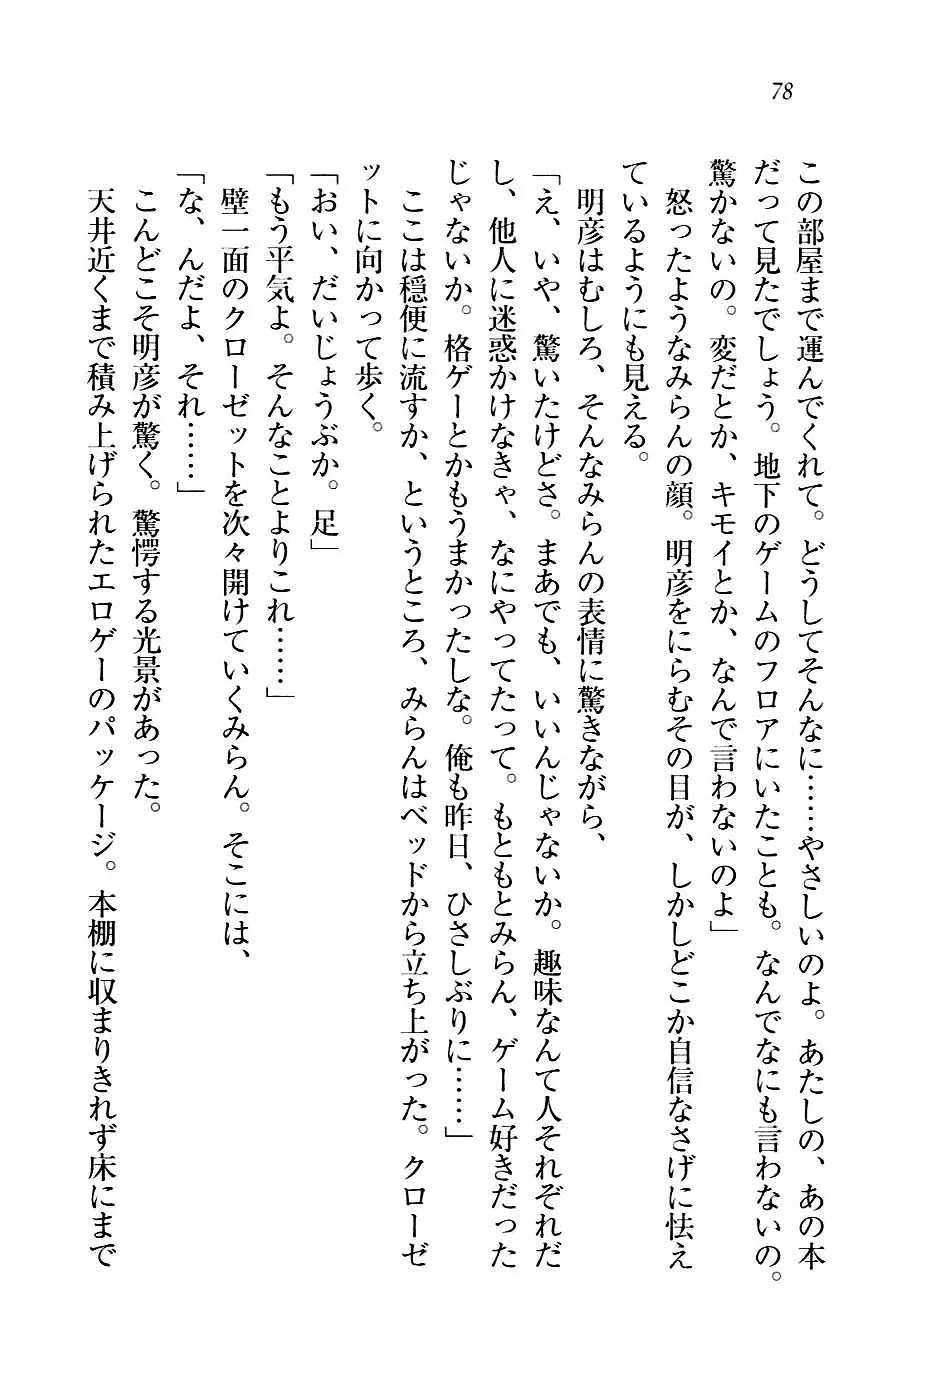 78
この部屋まで運んでくれて。どうしてそんなに……やさしいのよ。あたしの、あの本
だって見たでしょう。地下のゲームのフロアにいたことも。なんでなにも言わないの。
驚かないの。変だとか、キモイとか、なんで言わないのよ」
怒ったようなみらんの顔。明彦をにらむその目が、しかしどこか自信なさげに怯え
ているようにも見える。
明彦はむしろ、そんなみらんの表情に驚きながら、
「え、いや、驚いたけどさ。まあでも、いいんじゃないか。趣味なんて人それぞれだ
し、他人に迷惑かけなきゃ、なにやってたって。もともとみらん、ゲーム好きだった
じゃないか。格ゲーとかもうまかったしな。俺も昨日、ひさしぶりに……」
ここは穏便に流すか、というところ、みらんはベッドから立ち上がった。クローゼ
ットに向かって歩く。
「おい、だいじょうぶか。足」
「もう平気よ。そんなことよりこれ……」
壁一面のクローゼットを次々開けていくみらん。そこには、
「な、んだよ、それ……」
こんどこそ明彦が驚く。驚愕する光景があった。
天井近くまで積み上げられたエロゲーのパッケージ。本棚に収まりきれず床にまで